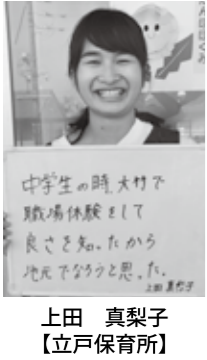 中学生の時、大村で
職場体験をして
良さを知ったから
地元でなろうと思った。
上田 真梨子
上田 真梨子
【立戸保育所】